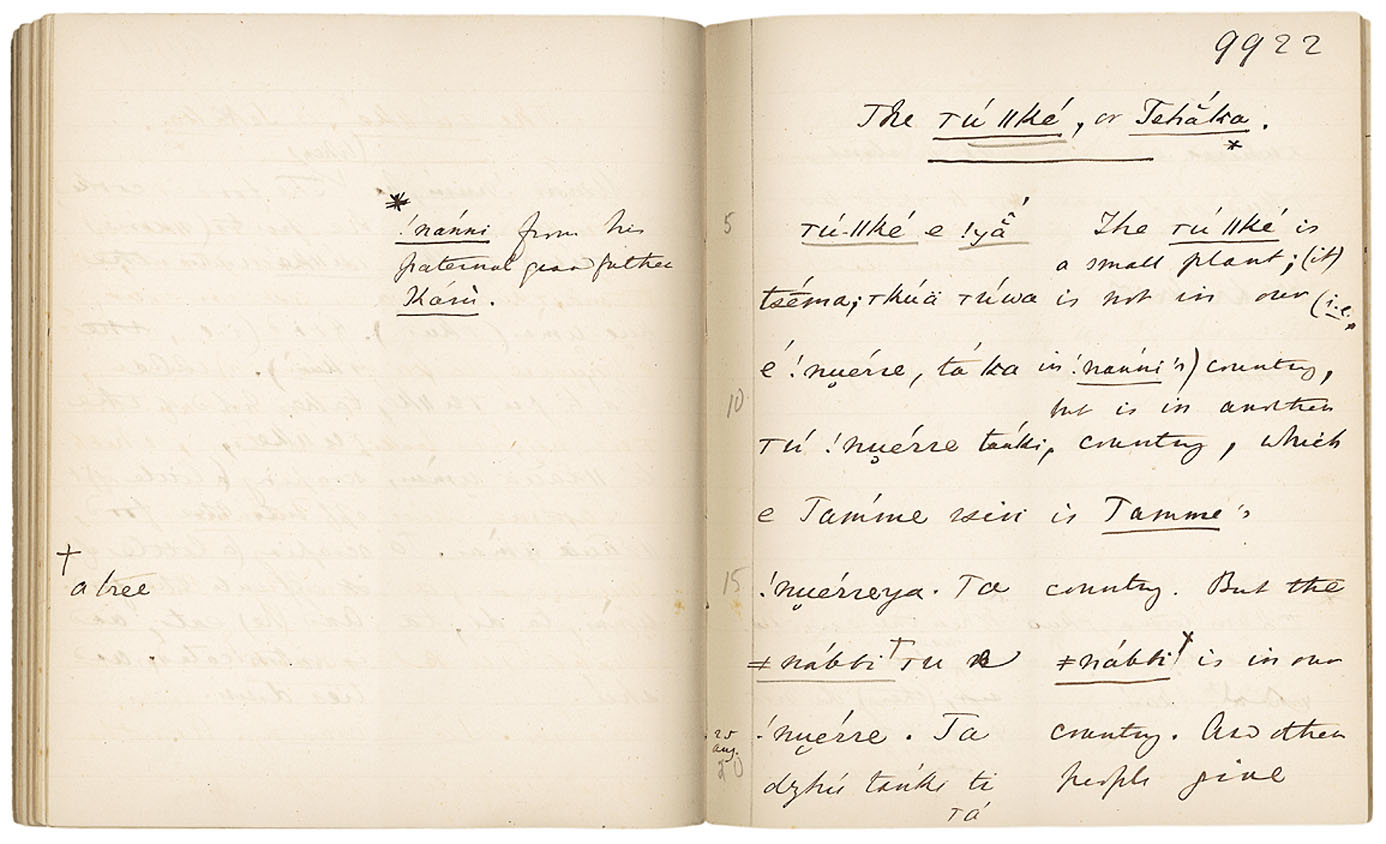 *
!nańni from his
paternal grandfather
Karù.
†
a tree
9922
The Tú ǁké, or Teháka.
*
5
Tú-ǁké e !yă The Tú ǁké is
a small plant; (it)
tséma; Tkúä Túwa is not in our (i.e.
é !nuérre, tá ka in !nańni's) country,
10 but is in another
Tú !nuérre tańki, country, which
e Tamme is Tamme's
15 !nuérreya. Ta country. But the
ǂnábbi† Tu ǂnábbi† is in our
!nuérre. Ta country. And other
25
Aug.
20
dzhú tańki ti people give
Tá